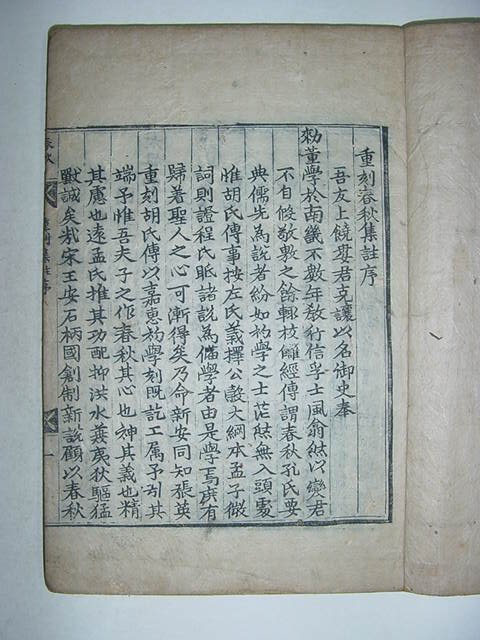 重刻春秋集註序
吾友上饒婁君克讓以名御史奉
勑董學於南畿不數年敎行信孚士風翕然以變君
不自假敎敷之餘輙校讎經傳謂春秋孔氏要
典儒先為說者紛如初學之士茫然無入頭處
惟胡氏傳事按左氏義擇公穀大綱本孟子微
詞則證程氏眡諸說為僃學者由是學焉庶有
歸着聖人之心可漸得矣乃命新安同知張英
重刻胡氏傳以嘉惠初學刻既訖工属予引其
端予惟吾夫子之作春秋其心也神其義也精
其慮也遠孟氏推其功配抑洪水兼夷狄驅猛
獸誠矣㦲宋王安石柄國創制新說顧以春秋
春秋
集註序
一